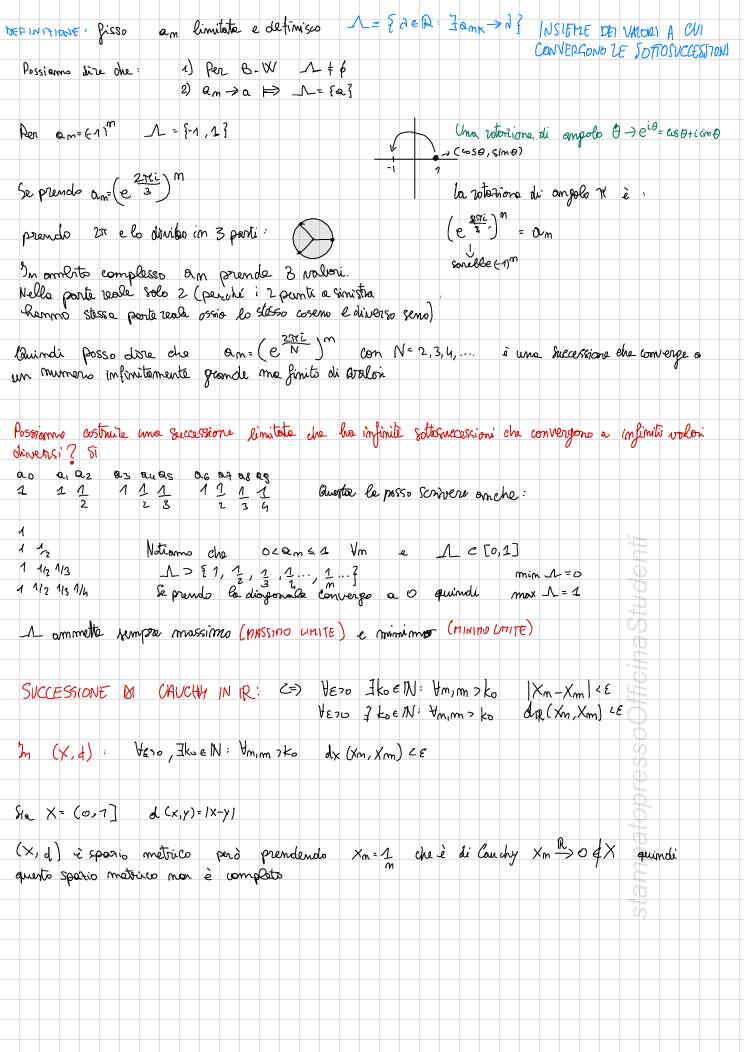 DEFINIZIONE: fisso an limitata e definisco Λ = { λ∈ℝ : ∃ ank → λ } INSIEME DEI VALORI A CUI
CONVERGONO LE SOTTOSUCCESSIONI
Possiamo dire che: 1) Per B-W Λ ≠ ∅
2) an → a ⟺ Λ = {a}
Per an = (-1)^n Λ = {-1, 1}
Una rotazione di angolo θ → e^{iθ} = cosθ + i sinθ
→ (cosθ, sinθ)
-1 1
Se prendo an = (e^{2πi/3})^n
La rotazione di angolo π è :
prendo 2π e lo divido in 3 parti :
(e^{2πi/2})^n = an
↓
sarebbe (-1)^n
In ambito complesso an prende 3 valori.
Nella parte reale solo 2 (perché i 2 punti a sinistra
hanno stessa parte reale ossia lo stesso coseno e diverso seno)
Quindi posso dire che an = (e^{2πi/N})^n con N = 2, 3, 4, .... è una successione che converge a
un numero infinitamente grande ma finito di valori
Possiamo costruire una successione limitata che ha infinite sottosuccessioni che convergono a infiniti valori
diversi? Sì
a0 a1 a2 a3 a4 a5 a6 a7 a8 a9
1 1 1/2 1 1/2 1/3 1 1/2 1/3 1/4 Questa la posso scrivere anche :
1
1 1/2 Notiamo che 0 < an ≤ 1 ∀n e Λ ⊂ [0,1]
1 1/2 1/3 Λ ⊃ { 1, 1/2, 1/3, 1/2 ..., 1/n ...} min Λ = 0
1 1/2 1/3 1/4 Se prendo la diagonale convergo a 0 quindi max Λ = 1
Λ ammette sempre massimo (MASSIMO LIMITE) e minimo (MINIMO LIMITE)
SUCCESSIONE DI CAUCHY IN ℝ : ⟺ ∀ε>0 ∃k0∈ℕ : ∀n,m > k0 |Xn - Xm| < ε
∀ε>0 ∃ k0∈ℕ : ∀n,m > k0 dℝ(Xn, Xm) < ε
In (X,d) : ∀ε>0, ∃k0∈ℕ : ∀n,m > k0 dX(Xn, Xm) < ε
Sia X = (0,1] d(x,y) = |x-y|
(X,d) è spazio metrico però prendendo Xn = 1/n che è di Cauchy Xn →ℝ 0 ∉ X quindi
questo spazio metrico non è completo
stampatopressoOfficinaStudenti